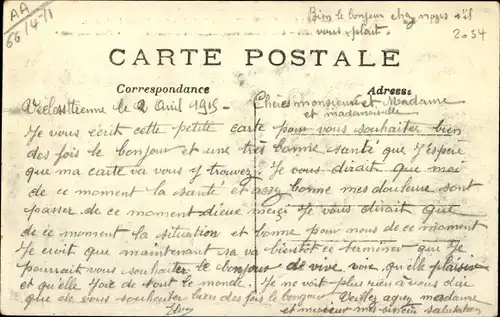 AA
66/4-/1
Bien le bonjour chez nous s'il
vous plait.
2054
CARTE POSTALE
Correspondance
Adresse
le 2 Avril 1915 -
Chères monsieur et Madame
et mademoiselle
Je vous écrit cette petite carte pour vous souhaiter bien
des fois le bonjour et une très bonne santé que J'espère
que ma carte va vous y trouvez Je vous dirait que moi
de ce moment la santé et assez bonne mes douleur sont
passer de ce moment dieux merçi Je vous dirait que
de ce moment la situation et bonne pour nous de ce moment
Je croit que maintenant sa va bientôt ce terminer que Je
pourrait vous souhaiter le bonjour de vive voix qu'elle plaisir
et qu'elle Joie de tout le monde. Je ne voit plus rien a vous dire
que de vous souhaiter bien des fois le bonjour Veuillez agréez madame
et monsieur mes sincère salutation